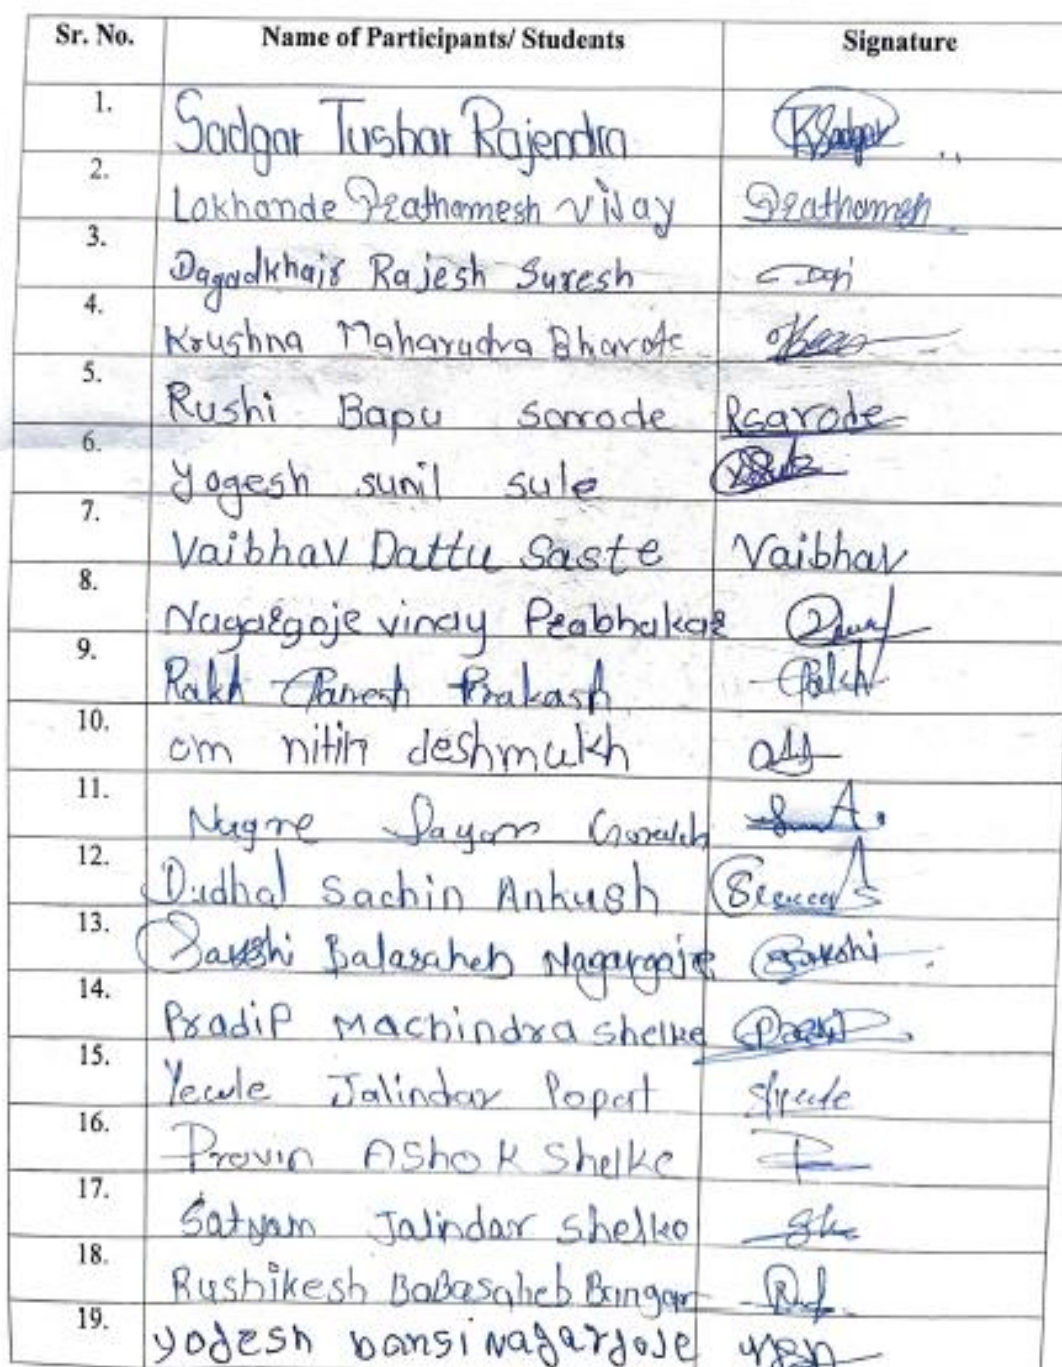 Sr. No. Name of Participants/ Students Signature
1. Sadgar Tushar Rajendra TRSadgar
2. Lokhande Prathamesh Vijay Prathamesh
3. Dagadkhair Rajesh Suresh
4. Krushna Maharudra Bharate
5. Rushi Bapu sarode Rsarode
6. Yogesh sunil sule
7. Vaibhav Dattu Saste Vaibhav
8. Nagargoje vinay Prabhakar
9. Rakh Ganesh Prakash
10. om nitin deshmukh
11. Nagre
12. Dudhal Sachin Ankush
13. Sakshi Balasaheb Nagargoje Sakshi
14. Pradip Machindra shelke
15. Yewle Jalindar Popat
16. Pravin Ashok Shelke
17. Satyam Jalindar shelke
18. Rushikesh BaBasaheb Bangar
19. yogesh bansi nagargoje